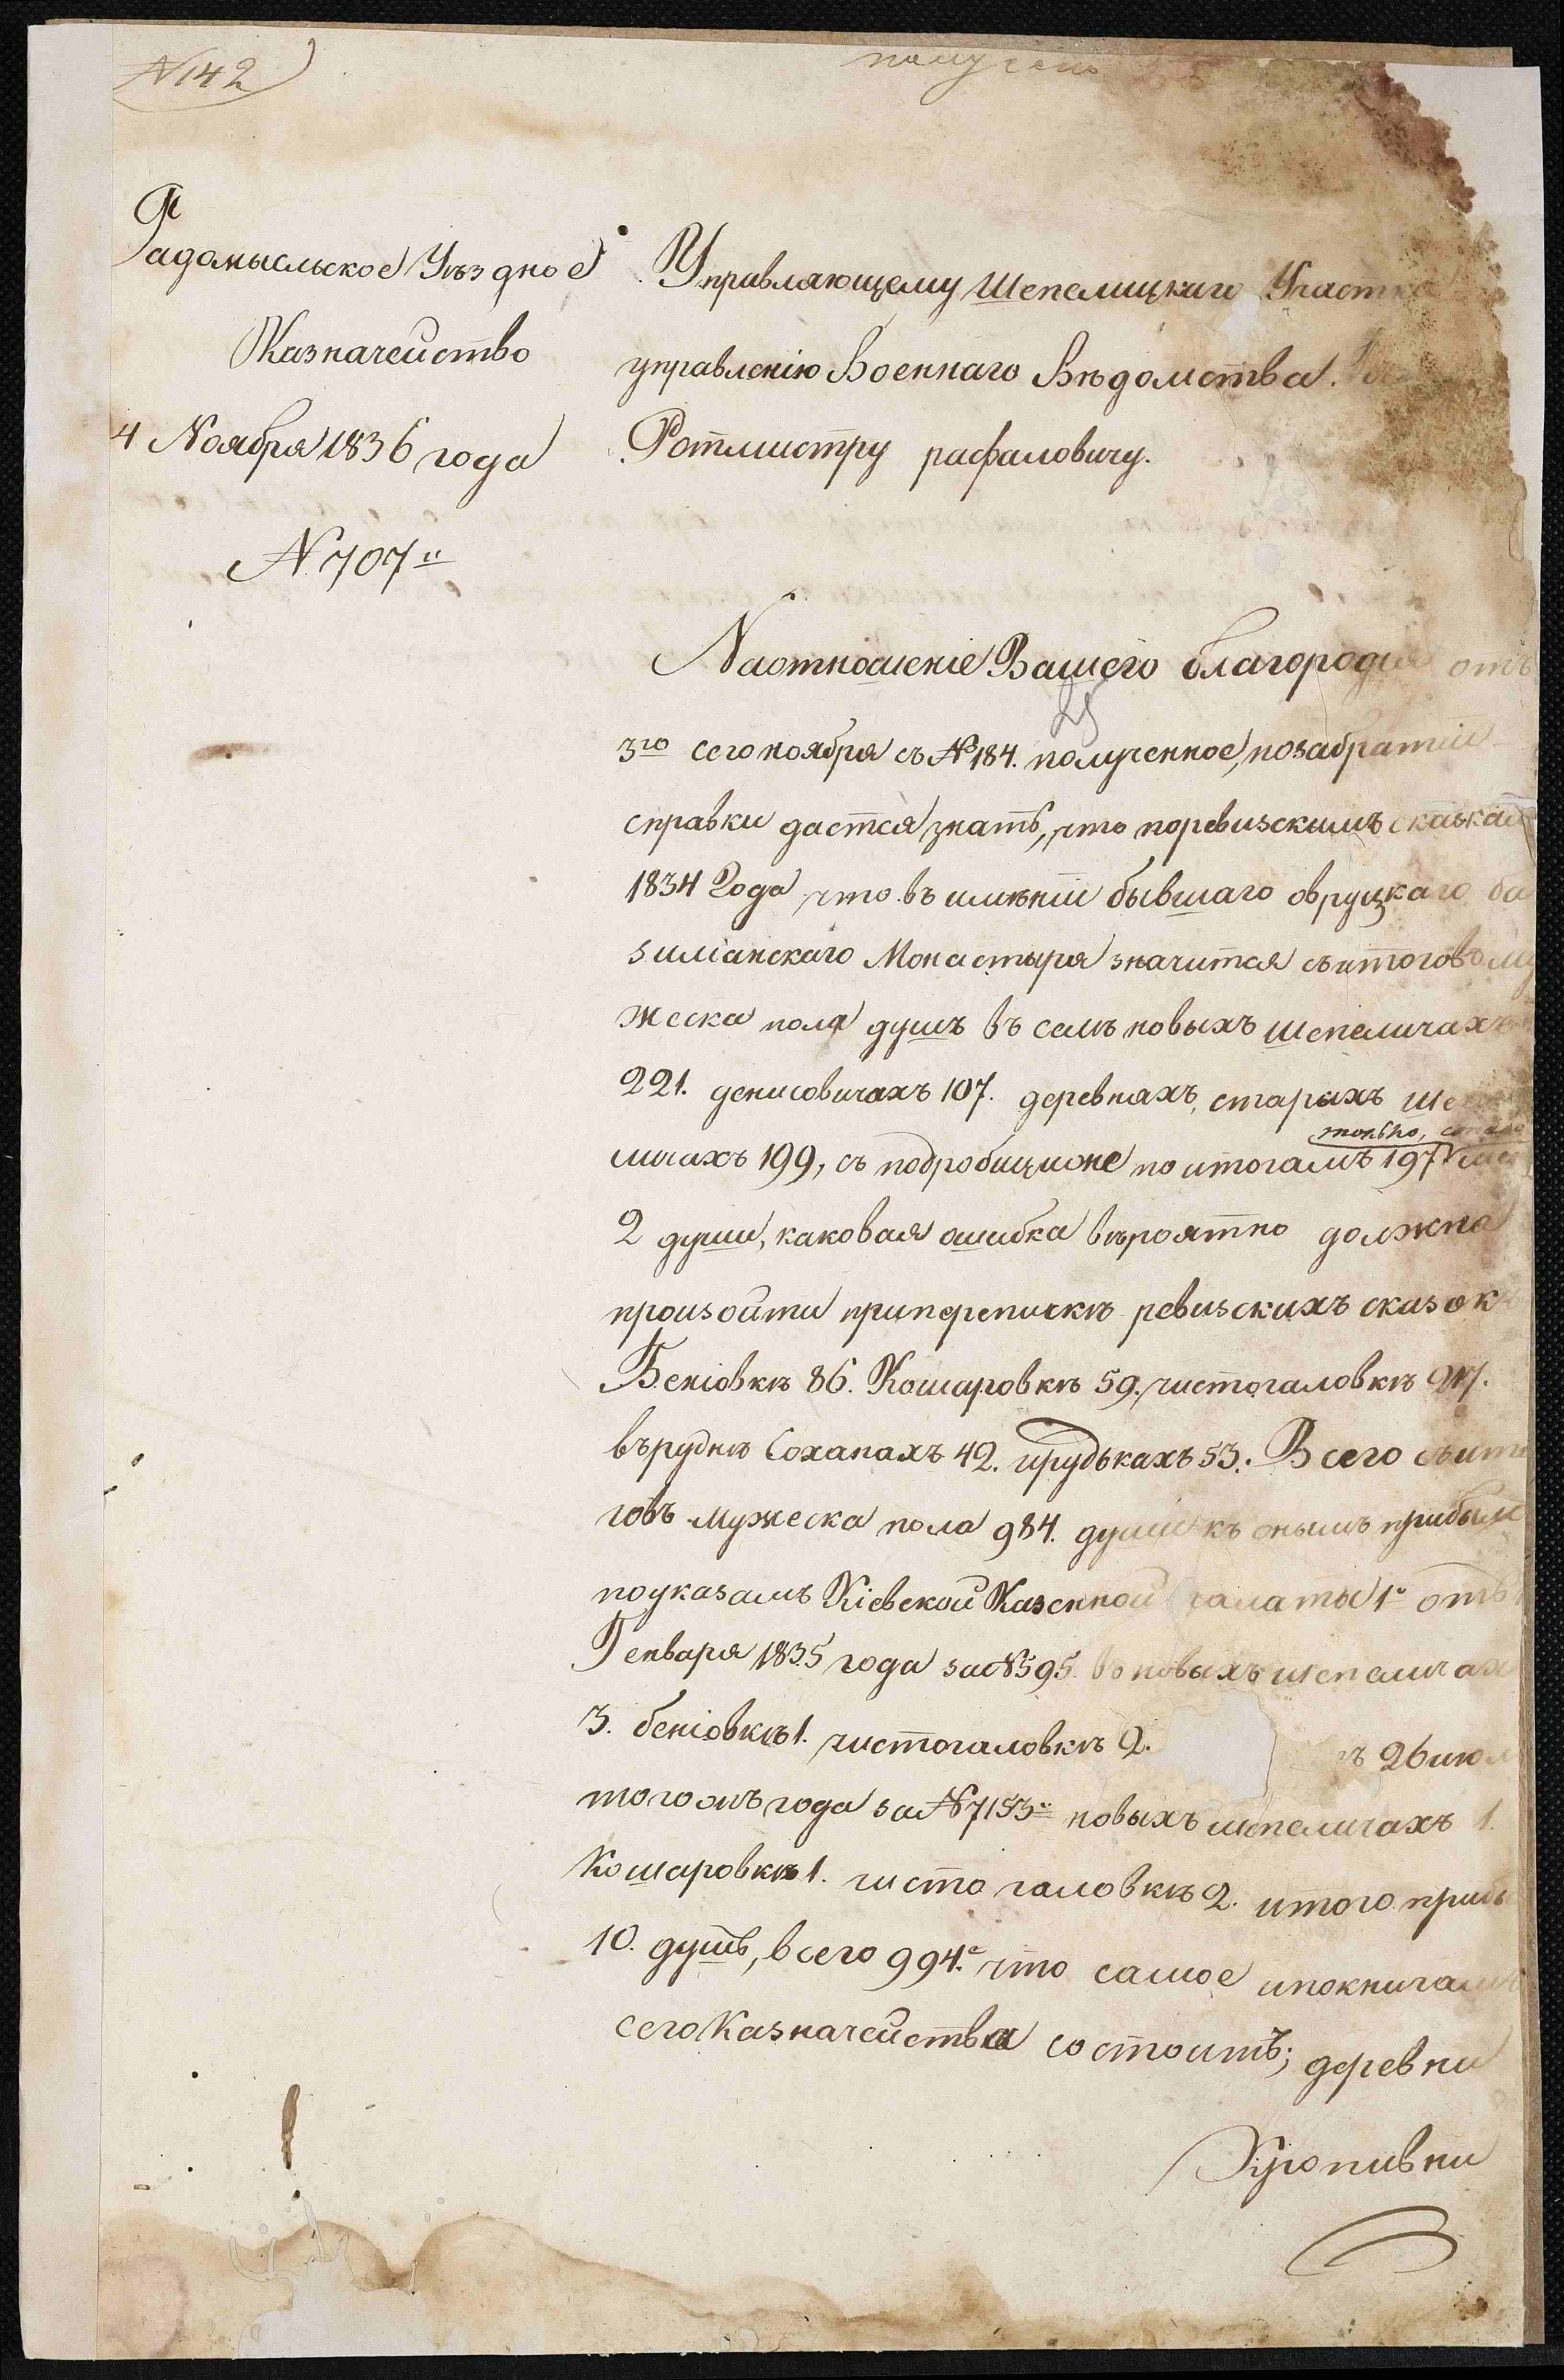 N 142
получено
Радомысльское Уѣздное
Казначейство
4 Ноября 1836 года
N 707.
Управляющему Шепелицкаго Участка
управленію Военнаго Вѣдомства.
Ротмистру рафаловичу.
На отношеніе Вашего благородия отъ
3го сего ноября съ № 184. полученное, по забратіи
справки дастся знать, что по ревизскимъ сказкамъ
1834 Года что въ имѣніи бывшаго овруцкаго ба
зиліанскаго Монастыря значится съ итоговъ му
жеска пола душъ въ селѣ новыхъ шепеличахъ
221. денисовичахъ 107. деревняхъ, старыхъ шепе
личахъ 199, съ подробиционе по итогамъ 197
только,
2 души, каковая ошибка вѣроятно должна
произойти при перепискѣ ревизскихъ сказокъ
Беніовкѣ 86. Кошаровкѣ 59. чистогаловкѣ 217.
въ руднѣ Соханахъ 42. ирудькахъ 53. Всего съ ито
говъ мужеска пола 984. души къ онымъ прибыло
по указамъ Кіевской Казенной палаты 1е отъ
Генваря 1835 года за № 595. въ новыхъ шепеличах
3. беніовкѣ 1. чистогаловкѣ 2. 26 июл
того жъ года за № 7153 новыхъ шепеличахъ 1.
Кошаровкѣ 1. чисто галовкѣ 2. итого прибы
10. душъ, всего 994. что самое и по книгамъ
сего Казначейства состоитъ; деревни
Кропивни